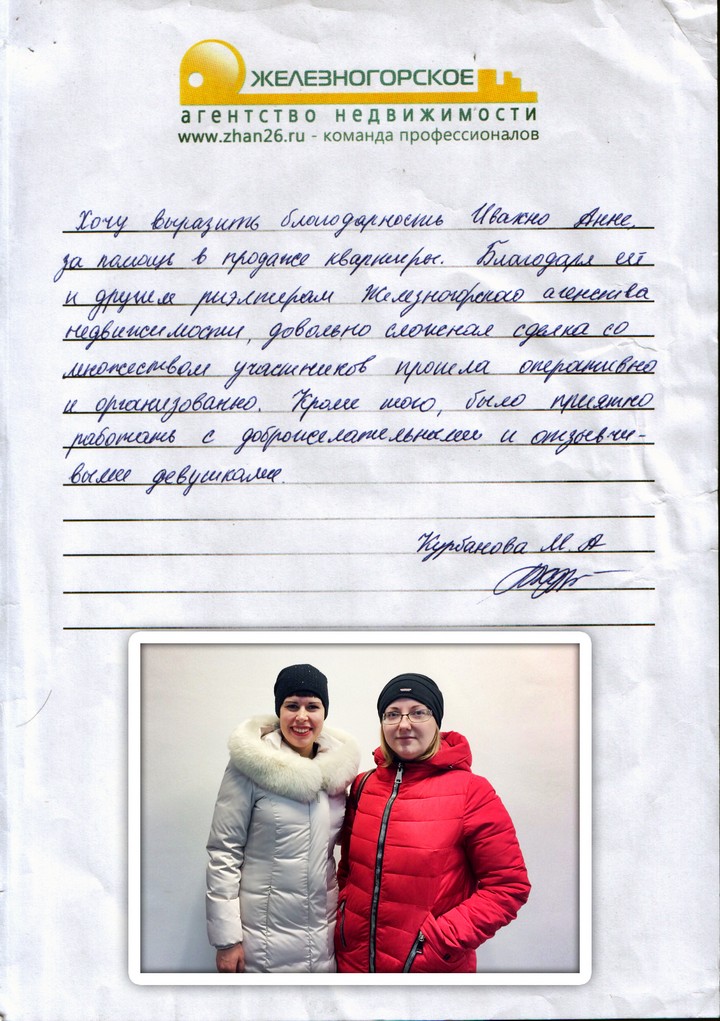 ЖЕЛЕЗНОГОРСКОЕ
агентство недвижимости
www.zhan26.ru - команда профессионалов
Хочу выразить благодарность Ивахно Анне,
за помощь в продаже квартиры. Благодаря ей
и другим риэлтерам Железногорского агенства
недвижимости, довольно сложная сделка со
множеством участников прошла оперативно
и организованно. Кроме того, было приятно
работать с доброжелательными и отзывчи-
выми девушками.
Курбанова М. А